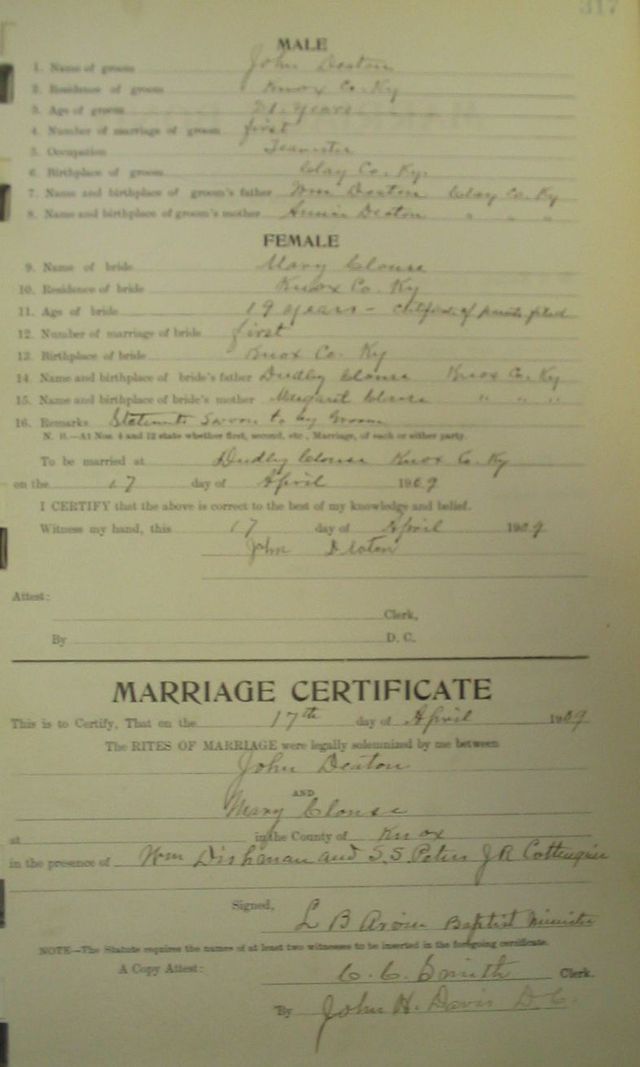 317
MALE
1. Name of groom John Deaton
2. Residence of groom Knox Co. Ky
3. Age of groom 21 years
4. Number of marriage of groom first
5. Occupation Teamster
6. Birthplace of groom Clay Co. Ky.
7. Name and birthplace of groom's father Wm Deaton Clay Co. Ky
8. Name and birthplace of groom's mother Annie Deaton " " "
FEMALE
9. Name of bride Mary Clouse
10. Residence of bride Knox Co. Ky
11. Age of bride 19 years - certificate of parents filed
12. Number of marriage of bride first
13. Birthplace of bride Knox Co. Ky
14. Name and birthplace of bride's father Dudley Clouse Knox Co. Ky
15. Name and birthplace of bride's mother Margaret Clouse " " "
16. Remarks Statements sworn to by Groom
N. B.—At Nos. 4 and 12 state whether first, second, etc., Marriage, of each or either party.
To be married at Dudley Clouse Knox Co. Ky
on the 17 day of April 1909
I CERTIFY that the above is correct to the best of my knowledge and belief.
Witness my hand, this 17 day of April 1909
John Deaton
Attest:
Clerk,
By D. C.
MARRIAGE CERTIFICATE
This is to Certify, That on the 17th day of April 1909
The RITES OF MARRIAGE were legally solemnized by me between
John Deaton
AND
Mary Clouse
at in the County of Knox
in the presence of Wm Dishman and S. S. Peters J R
Signed, L B Baptist Minister
NOTE—The Statute requires the names of at least two witnesses to be inserted in the foregoing certificate.
A Copy Attest: C. C. Smith Clerk.
By John H. Davis D. C.